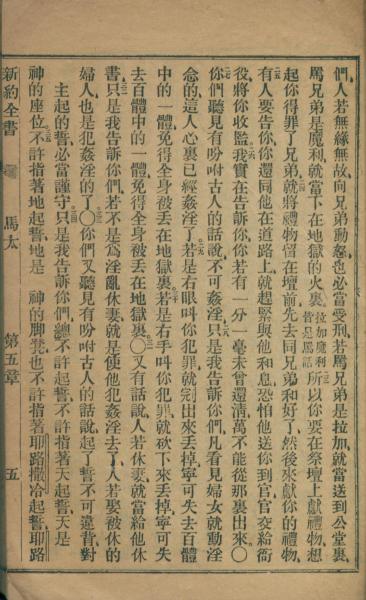 們人若無緣無故向兄弟動怒也必當受刑若罵兄弟是拉加就當送到公堂裏
罵兄弟是魔利就當下在地獄的火裏拉加魔利皆是罵話所以你要在祭壇上獻禮物想
起你得罪了兄弟就將禮物留在壇前先去同兄弟和好了然後來獻你的禮物
有人要告你你還同他在道路上就趕緊與他和息恐怕他送你到官官交給衙
役將你收監我實在告訴你你若有一分一毫未曾還清萬不能從那裏出來〇
你們聽見有吩咐古人的話說不可姦淫只是我告訴你們凡看見婦女就動淫
念的這人心裏已經姦淫了若是右眼叫你犯罪就剜出來丟掉寧可失去百體
中的一體免得全身被丟在地獄裏若是右手叫你犯罪就砍下來丟掉寧可失
去百體中的一體免得全身被丟在地獄裏〇又有話說人若休妻就當給他休
書只是我告訴你們若不是為淫亂休妻就是使他犯姦淫去了人若娶被休的
婦人也是犯姦淫的了〇你們又聽見有吩咐古人的話說起了誓不可違背對
主起的誓必當謹守只是我告訴你們總不許起誓不許指著天起誓天是
神的座位不許指著地起誓地是 神的脚凳也不許指著耶路撒冷起誓耶路
新約全書 馬太 第五章 五